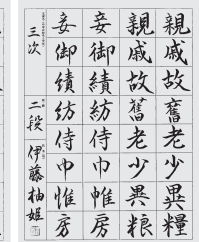 親戚故舊老少異糧
親戚故舊老少異粮
妾御績紡侍巾帷房
妾御績紡侍巾帷房
三次 二段 伊藤柚姫